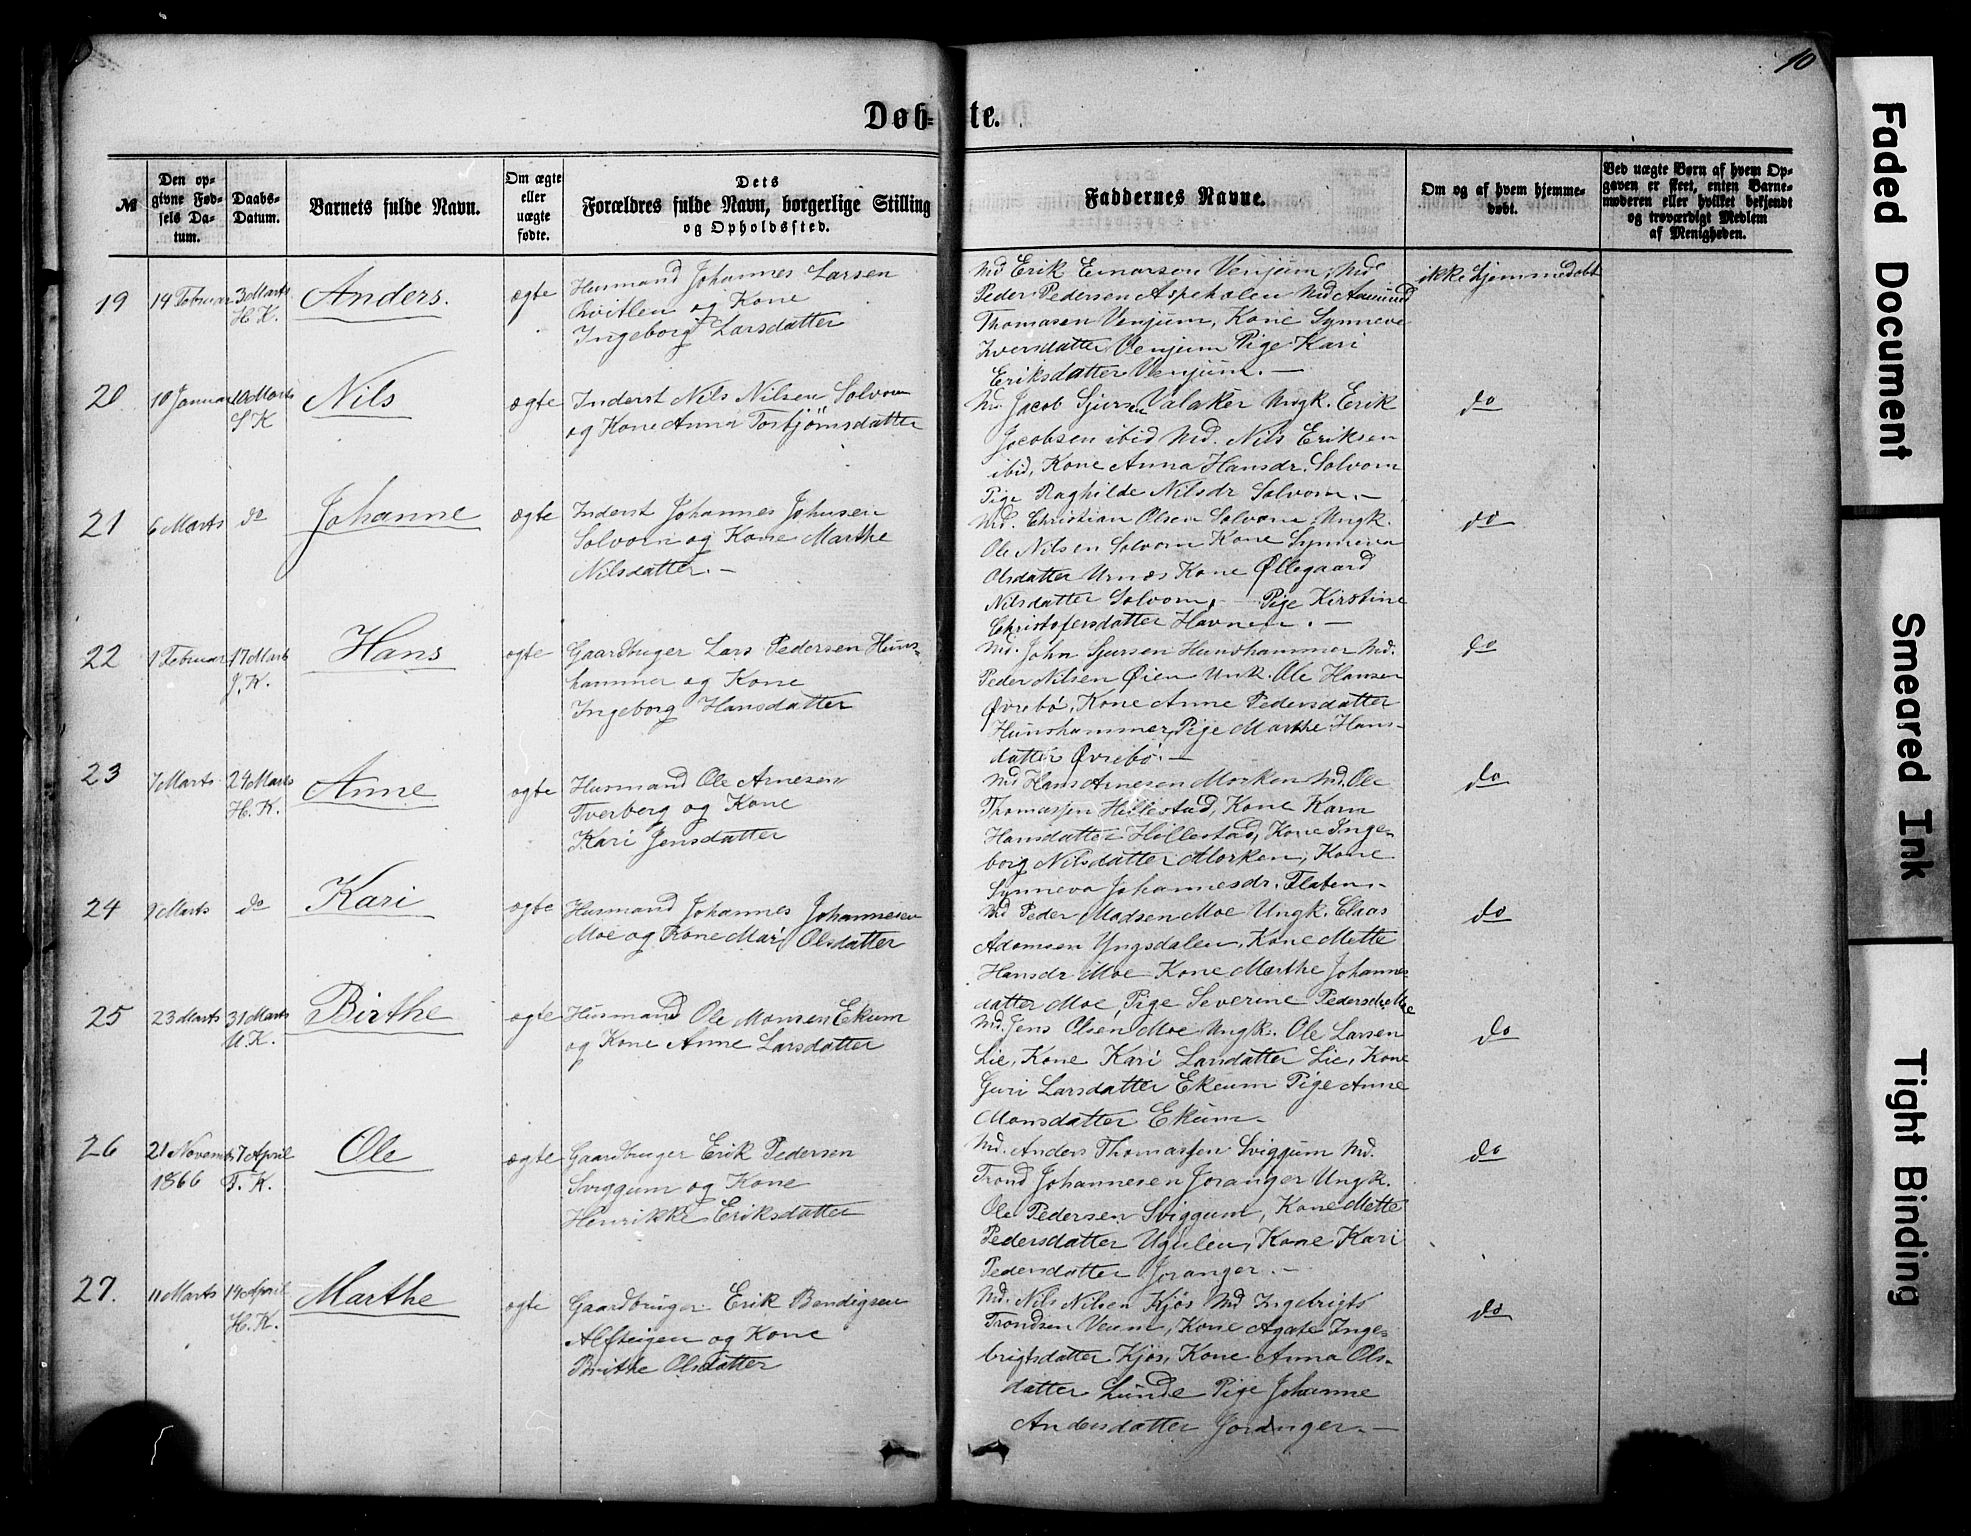 10
Døb-te.
№
Den opgivne Fødsels Datum.
Daabs-Datum.
Barnets fulde Navn.
Om ægte eller uægte fødte.
Dets Forældres fulde Navn, borgerlige Stilling og Opholdssted.
Faddernes Navne.
Om og af hvem hjemmedøbt.
Ved uægte Børn af hvem Opgaven er skeet, enten Barnemoderen eller hvilket bekjendt og troværdigt Medlem af Menigheden.
19 14 Februar 3 Marts H. K. Anders. ægte
Husmand Johannes Larsen
og Kone
Ingeborg Larsdatter
Md Erik Einarsen Venjum, Md
Peder Pedersen Aspeholen Md Aamund
Thomasen Venjum, Kone Synneve
Iversdatter Venjum Pige Kari
Eriksdatter Venjum. —
ikke hjemmedøbt
20 10 Januar 10 Marts S K Nils ægte
Inderst Nils Nilsen Solvorn
og Kone Anna Torbjörnsdatter
Md. Jacob Sjursen Valaker Ungk. Erik
Jacobsen ibid Md. Nils Eriksen
ibid, Kone Anna Hansdr. Solvorn
Pige Raghilde Nilsdr Solvorn. —
do
21 6 Marts do Johanne ægte
Inderst Johannes Johnsen
Solvorn og Kone Marthe
Nilsdatter. —
Md. Christian Olsen Solvorn, Ungk.
Ole Nilsen Solvorn Kone Synneva
Olsdatter Urnæs Kone Øllegaard
Nilsdatter Solvorn, — Pige Kirstine
Christofersdatter Havnen. —
do
22 1 Februar 17 Marts J. K. Hans ægte
Gaardbruger Lars Pedersen Huns-
hammer og Kone
Ingeborg Hansdatter
Md. John Sjursen Hunshammer Md.
Peder Nilsen Øien Unk. Ole Hansen
Øvrebø, Kone Anne Pedersdatter
Hunshammer, Pige Marthe Hans-
datter Øvrebø. —
do
23 7 Marts 24 Marts H. K. Anne ægte
Husmand Ole Arnesen
Tverberg og Kone
Kari Jensdatter
Md Hans Arnesen Morken Md. Ole
Thomassen Hillestad, Kone Karn
Hansdatter Hillestad, Kone Inge-
borg Nilsdatter Morken, Kone
Synneva Johannesdr. Flaten. —
do
24 Marts do Kari ægte
Husmand Johannes Johannesen
Moe og Kone Mari Olsdatter
Md Peder Madsen Moe Ungk. Claas
Adamsen Yngsdalen, Kone Mette
Hansdr Moe Kone Marthe Johannes-
datter Moe, Pige Severine
do
25 23 Marts 31 Marts U. K. Birthe ægte
Husmand Ole Monsen Ekum
og Kone Anne Larsdatter
Md. Jens Olsen Moe Ungk. Ole Larsen
Lie, Kone Kari Larsdatter Lie, Kone
Guri Larsdatter Ekum Pige Anne
Monsdatter Ekum —
do
26 21 Novemb 1866 7 April F. K. Ole ægte
Gaardbruger Erik Pedersen
Sviggum og Kone
Henrikke Eriksdatter
Md. Anders Thomassen Sviggum Md.
Trond Johannesen Joranger Ungk.
Ole Pedersen Sviggum, Kone Mette
Pedersdatter Ugulen, Kone Kari
Pedersdatter Joranger. —
do
27. 11 Marts 14 April H. K. Marthe ægte
Gaardbruger Erik Bendigsen
Alsteigen og Kone
Brithe Olsdatter
Md. Nils Nilsen Kjös Md Ingebrigts
Trondsen Veum, Kone Agate Inge-
brigtsdatter Kjös, Kone Anna Ols-
datter Lunde Pige Johanne
Andersdatter Joranger. —
do
Faded Document
Smeared Ink
Tight Binding